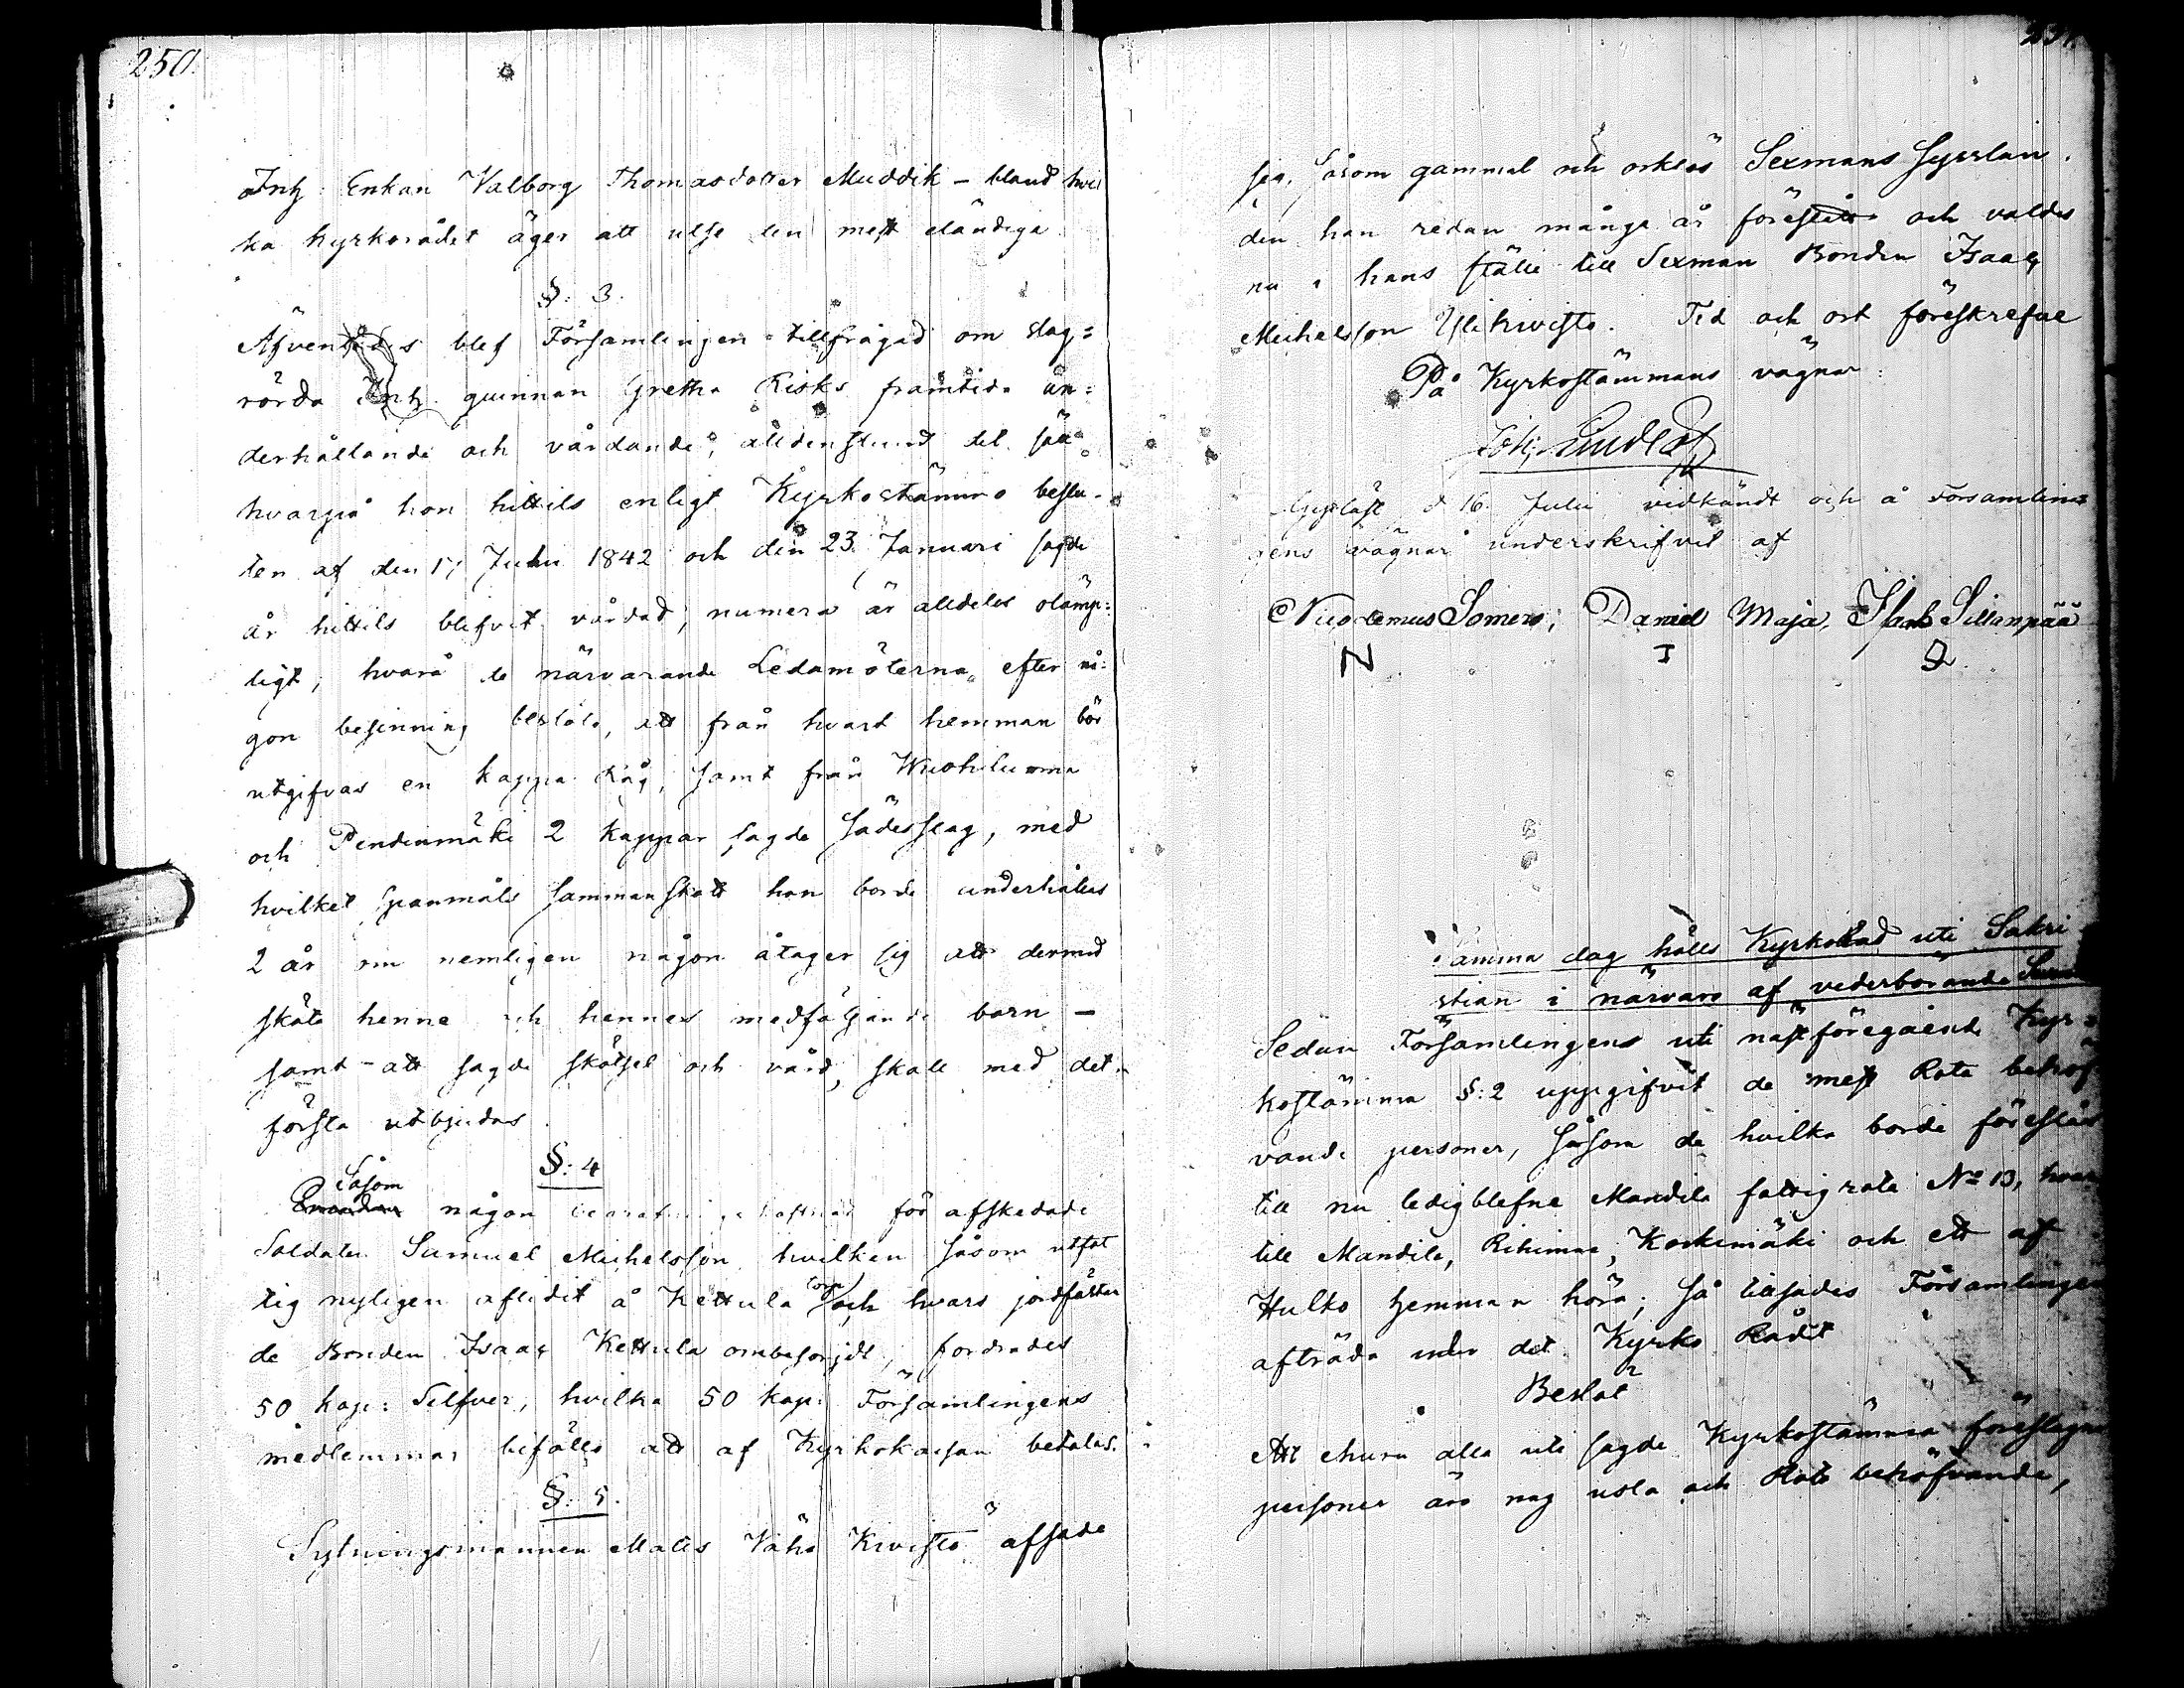 250.
Inh: Enkan Valborg Thomasdotter Muddik – bland hvil
ka Kyrkorådet äger att utse den mest eländiga
§: 3.
Äfven blef Församlingen tillfrågad om slag=
rörda Inh. quinnan Gretha Risks framtida un=
derhållande och vårdande, alldenstund det sätt
hvarpå hon hittils enligt Kyrkostämmo beslu-
ten af den 17 Juli 1842 och den 23 Januari sagde
år hittils blifvit vårdad, numera är alldeles olämp=
ligt, hvarå de närvarande Ledamöterna efter nå=
gon besinning beslöto, att från hvart hemman bör
utgifvas en kappa råg, samt från Wuohiluoma
och Pendinmäki 2 kappar sagde Sädesslag, med
hvilket Spanmåls Sammanskott hon borde underhållas
2 år om nemligen någon åtager sig att dermed
sköta henne och hennes medföljande barn –
samt – att sagde skötsel och vård, skall med det
första utbjudas.
§: 4
Såsom
någon för afskedade
Soldaten Samuel Michelsson hvilken såsom utfat
tig nyligen aflidit å Kettula torp och hvars jordfästan
de Bonden Isaac Kettula ombesorjdt, fordrades
50 kop: Silfver, hvilka 50 kop: Församlingens
medlemmar biföllo att af Kyrkokassan betalas.
§: 5.
Sytningsmannen Matts Vähä Kivistö afsade
251.
sig, såsom gammal och orklös Sexmans sysslan,
den han redan många år förestått och valdes
nu i hans ställe till Sexman Bonden Isaac
Michelsson Ylikivistö. Tid och ort föreskrefne
På Kyrkostämmans vägnar:
Joh: Lindlöf
Uppläst d 16 Julii vidkändt och å Församlin=
gens vägnar underskrifvit af
Nicodemus Somero, Daniel Maja, Isak Sillanpää
N I
Samma dag hölls Kyrkoråd uti Sakri
stian i närvaro af vederbörande
Sedan Församlingens uti nästföregående Kyr=
kostämma §: 2 uppgifvit de mest Rote behöf
vande personer, såsom de hvilka borde föreslås
till nu ledigblefne Mandila fattig rote No 13, hvar
till Mandila, Rihimae, Koskimäki och ett af
Hulko hemman höra; så tillsades Församlingen
afträda under det Kyrko Rådet
Beslöt
Att ehuru alla uti sagde Kyrkostämma föreslagne
personer äro nog usla och Rote behöfvande,